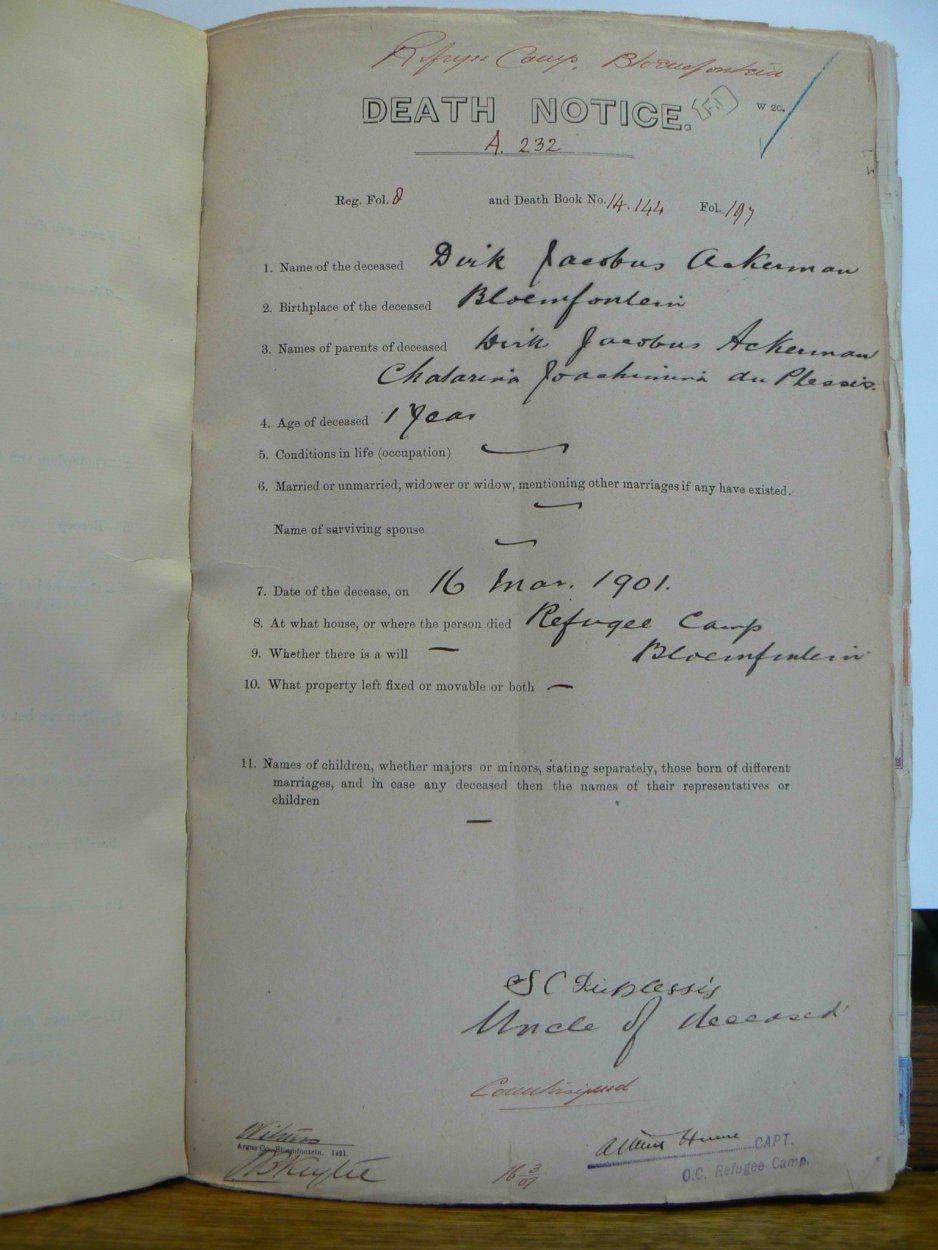 Refugee Camp, Bloemfontein
DEATH NOTICE.
W 20.
A. 232
Reg. Fol. 8 and Death Book No. 14.144 Fol. 197
1. Name of the deceased Dirk Jacobus Ackerman
2. Birthplace of the deceased Bloemfontein
3. Names of parents of deceased Dirk Jacobus Ackerman
Chatarina Joachimina du Plessis.
4. Age of deceased 1 Year
5. Conditions in life (occupation)
6. Married or unmarried, widower or widow, mentioning other marriages if any have existed.
Name of surviving spouse
7. Date of the decease, on 16 Mar. 1901.
8. At what house, or where the person died Refugee Camp
9. Whether there is a will — Bloemfontein
10. What property left fixed or movable or both —
11. Names of children, whether majors or minors, stating separately, those born of different
marriages, and in case any deceased then the names of their representatives or
children
—
S C Duplessis
Uncle of deceased
Countersigned
Witness
Argus Co. Bloemfontein. 1421.
Hume CAPT.
O.C. Refugee Camp.
16 3/01